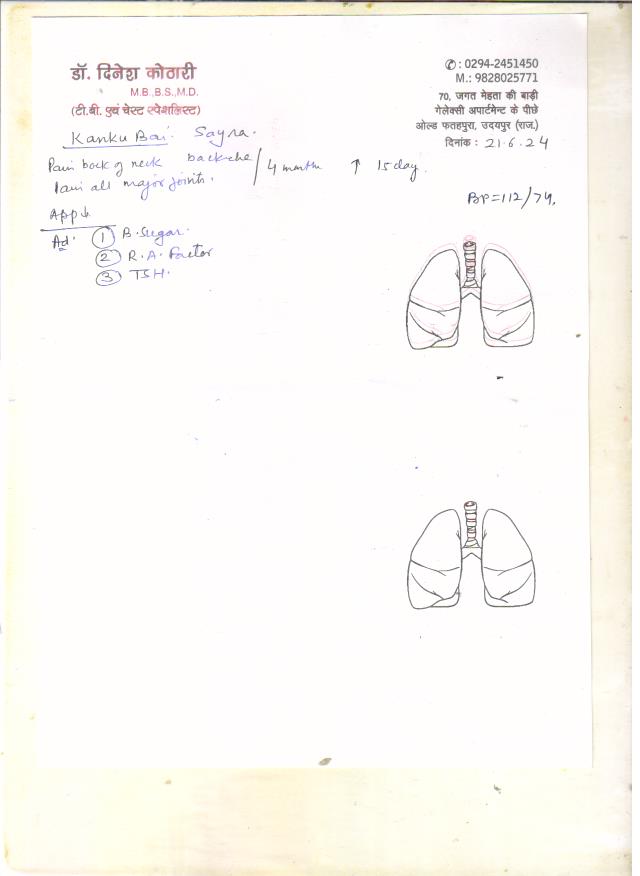 डॉ. दिनेश कोठारी
M.B.,B.S.,M.D.
(टी.बी. एवं चेस्ट स्पेशलिस्ट)
✆ : 0294-2451450
M.: 9828025771
70, जगत मेहता की बाड़ी
गेलेक्सी अपार्टमेन्ट के पीछे
ओल्ड फतहपुरा, उदयपुर (राज.)
दिनांक : 21.6.24
Kanku Bai. Sayra.
Pain back of neck backache / 4 months ↑ 15 day.
Pain all major joints.
BP=112/74.
App ↓
Ad. ① B. Sugar.
② R.A. Factor
③ TSH.